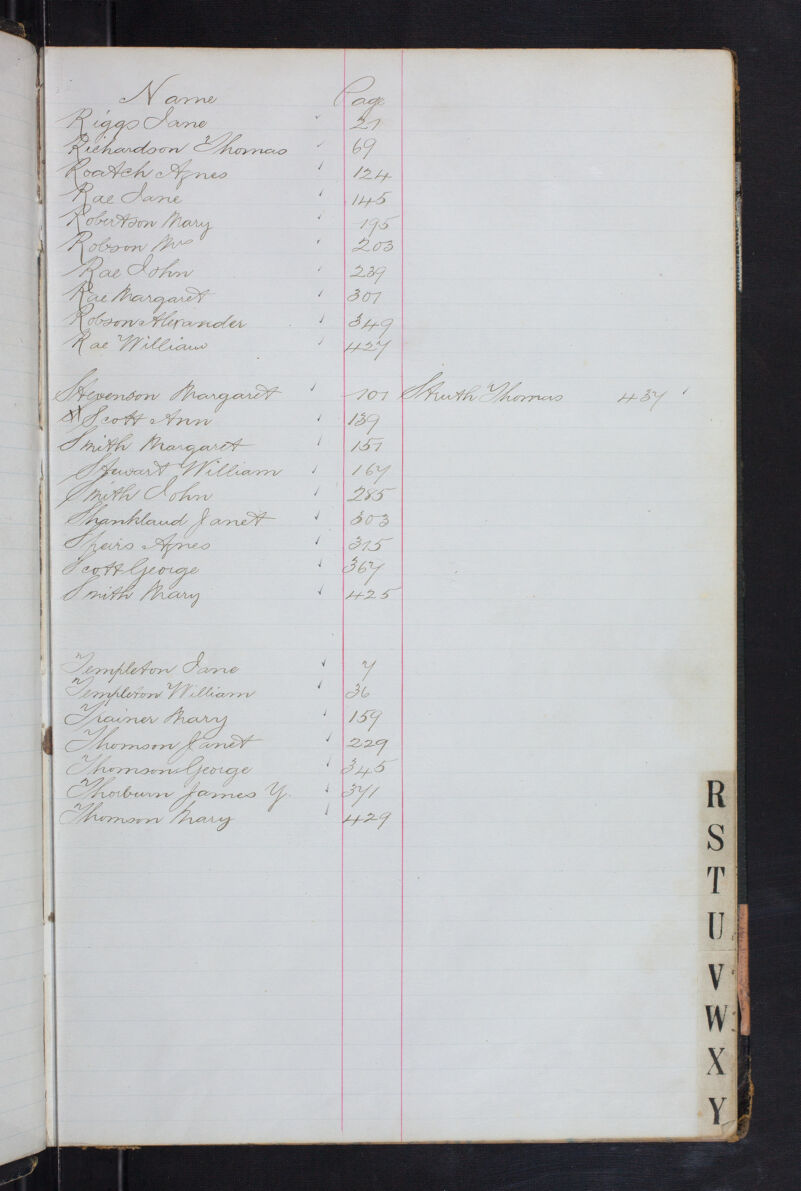 Name Page
Riggs Jane 21
Richardson Thomas 69
Roatch Agnes 124
Rae Jane 145
Robertson Mary 195
Robson Mrs 203
Rae John 239
Rae Margaret 301
Robson Alexander 349
Rae William 427
Stevenson Margaret 101 Struth Thomas 437
Scott Ann 139
Smith Margaret 151
Stewart William 167
Smith John 285
Shankland Janet 303
Speirs Agnes 315
Scott George 367
Smith Mary 425
Templeton Jane 7
Templeton William 36
Trainer Mary 159
Thomson Janet 229
Thomson George 345
Thorburn James Y. 371
Thomson Mary 429
R
S
T
U
V
W
X
Y